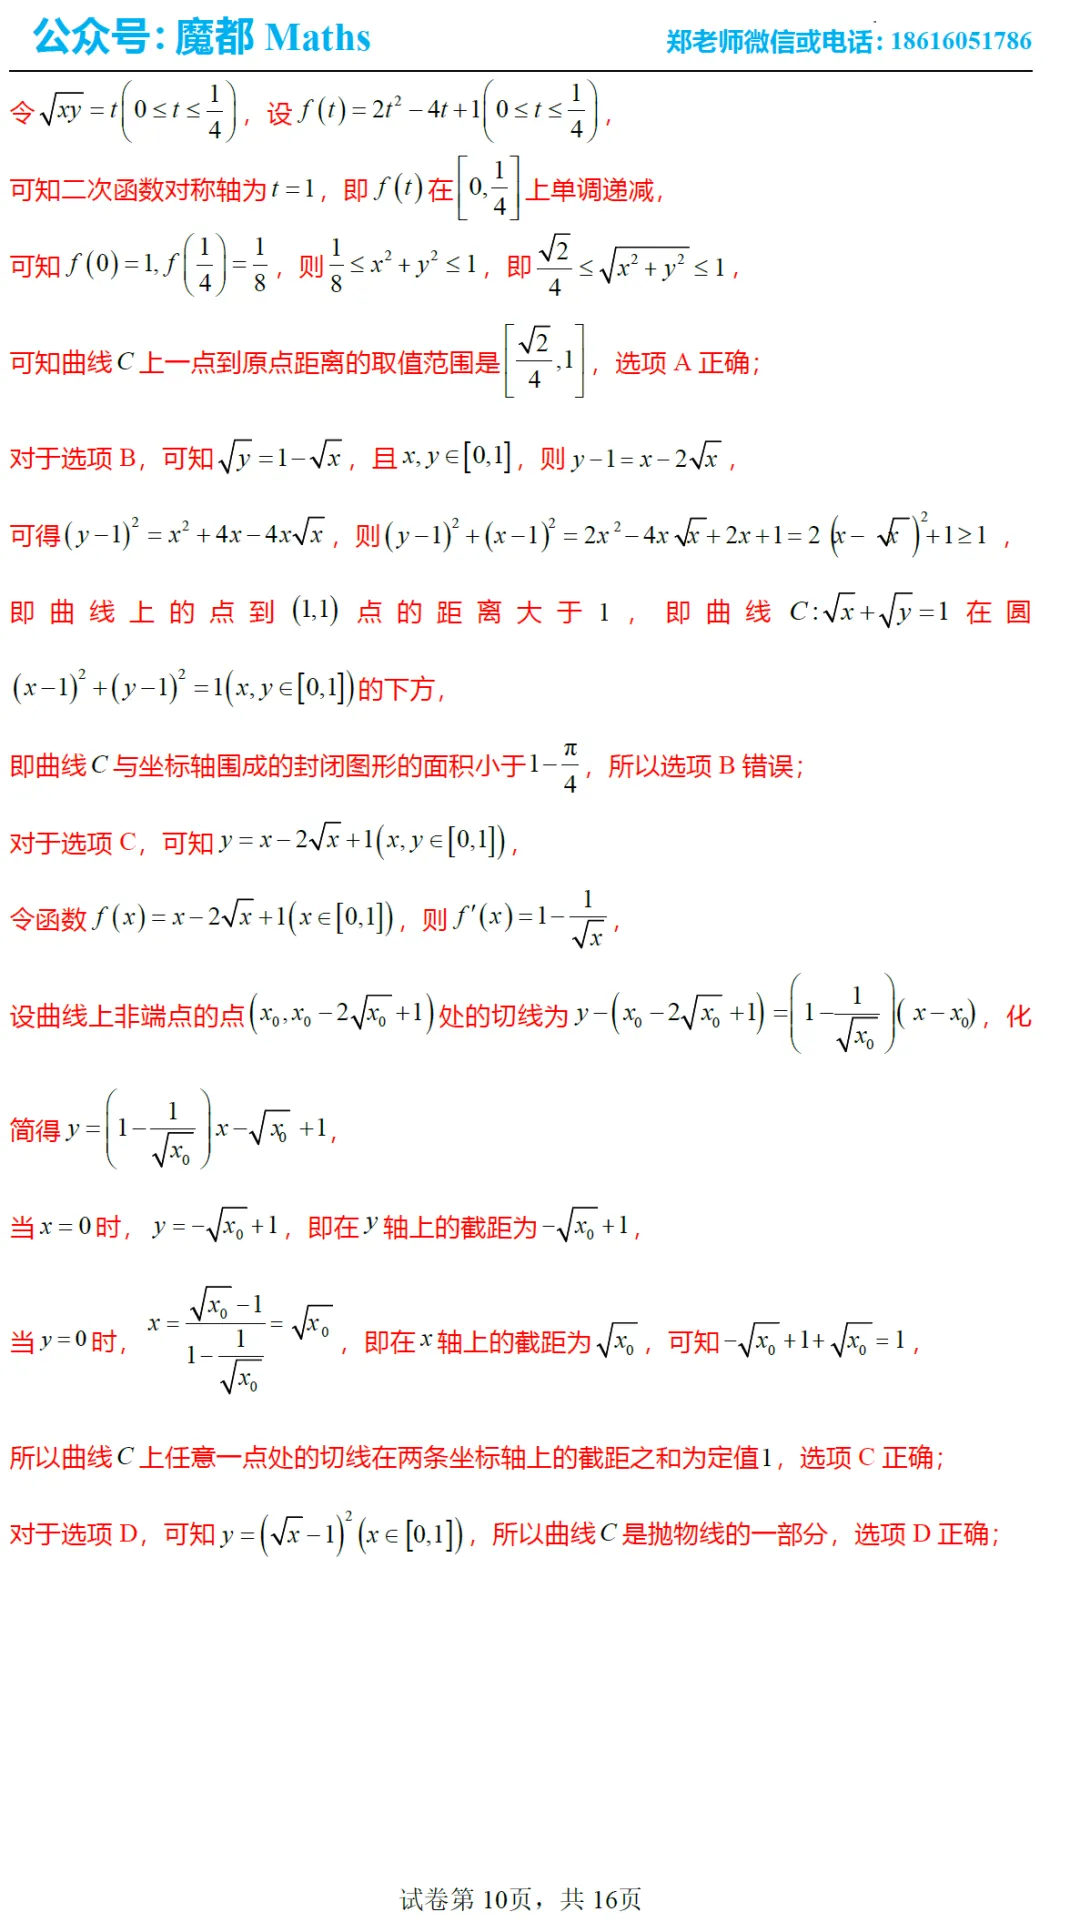 公众号：魔都 Maths 郑老师微信或电话：18616051786
令 √(xy) = t (0 ≤ t ≤ 1/4)，设 f(t) = 2t² − 4t + 1 (0 ≤ t ≤ 1/4)，
可知二次函数对称轴为 t = 1，即 f(t) 在 [0, 1/4] 上单调递减，
可知 f(0) = 1, f(1/4) = 1/8，则 1/8 ≤ x² + y² ≤ 1，即 √2/4 ≤ √(x² + y²) ≤ 1，
可知曲线 C 上一点到原点距离的取值范围是 [√2/4, 1]，选项 A 正确；
对于选项 B，可知 √y = 1 − √x，且 x, y ∈ [0,1]，则 y − 1 = x − 2√x，
可得 (y − 1)² = x² + 4x − 4x√x，则 (y − 1)² + (x − 1)² = 2x² − 4x√x + 2x + 1 = 2(x − √x)² + 1 ≥ 1，
即曲线上的点到 (1,1) 点的距离大于 1，即曲线 C: √x + √y = 1 在圆
(x − 1)² + (y − 1)² = 1 (x, y ∈ [0,1]) 的下方，
即曲线 C 与坐标轴围成的封闭图形的面积小于 1 − π/4，所以选项 B 错误；
对于选项 C，可知 y = x − 2√x + 1 (x, y ∈ [0,1])，
令函数 f(x) = x − 2√x + 1 (x ∈ [0,1])，则 f′(x) = 1 − 1/√x，
设曲线上非端点的点 (x₀, x₀ − 2√x₀ + 1) 处的切线为 y − (x₀ − 2√x₀ + 1) = (1 − 1/√x₀)(x − x₀)，化
简得 y = (1 − 1/√x₀)x − √x₀ + 1，
当 x = 0 时， y = −√x₀ + 1，即在 y 轴上的截距为 −√x₀ + 1，
当 y = 0 时， x = (√x₀ − 1)/(1 − 1/√x₀) = √x₀，即在 x 轴上的截距为 √x₀，可知 −√x₀ + 1 + √x₀ = 1，
所以曲线 C 上任意一点处的切线在两条坐标轴上的截距之和为定值 1，选项 C 正确；
对于选项 D，可知 y = (√x − 1)² (x ∈ [0,1])，所以曲线 C 是抛物线的一部分，选项 D 正确；
试卷第 10页，共 16页